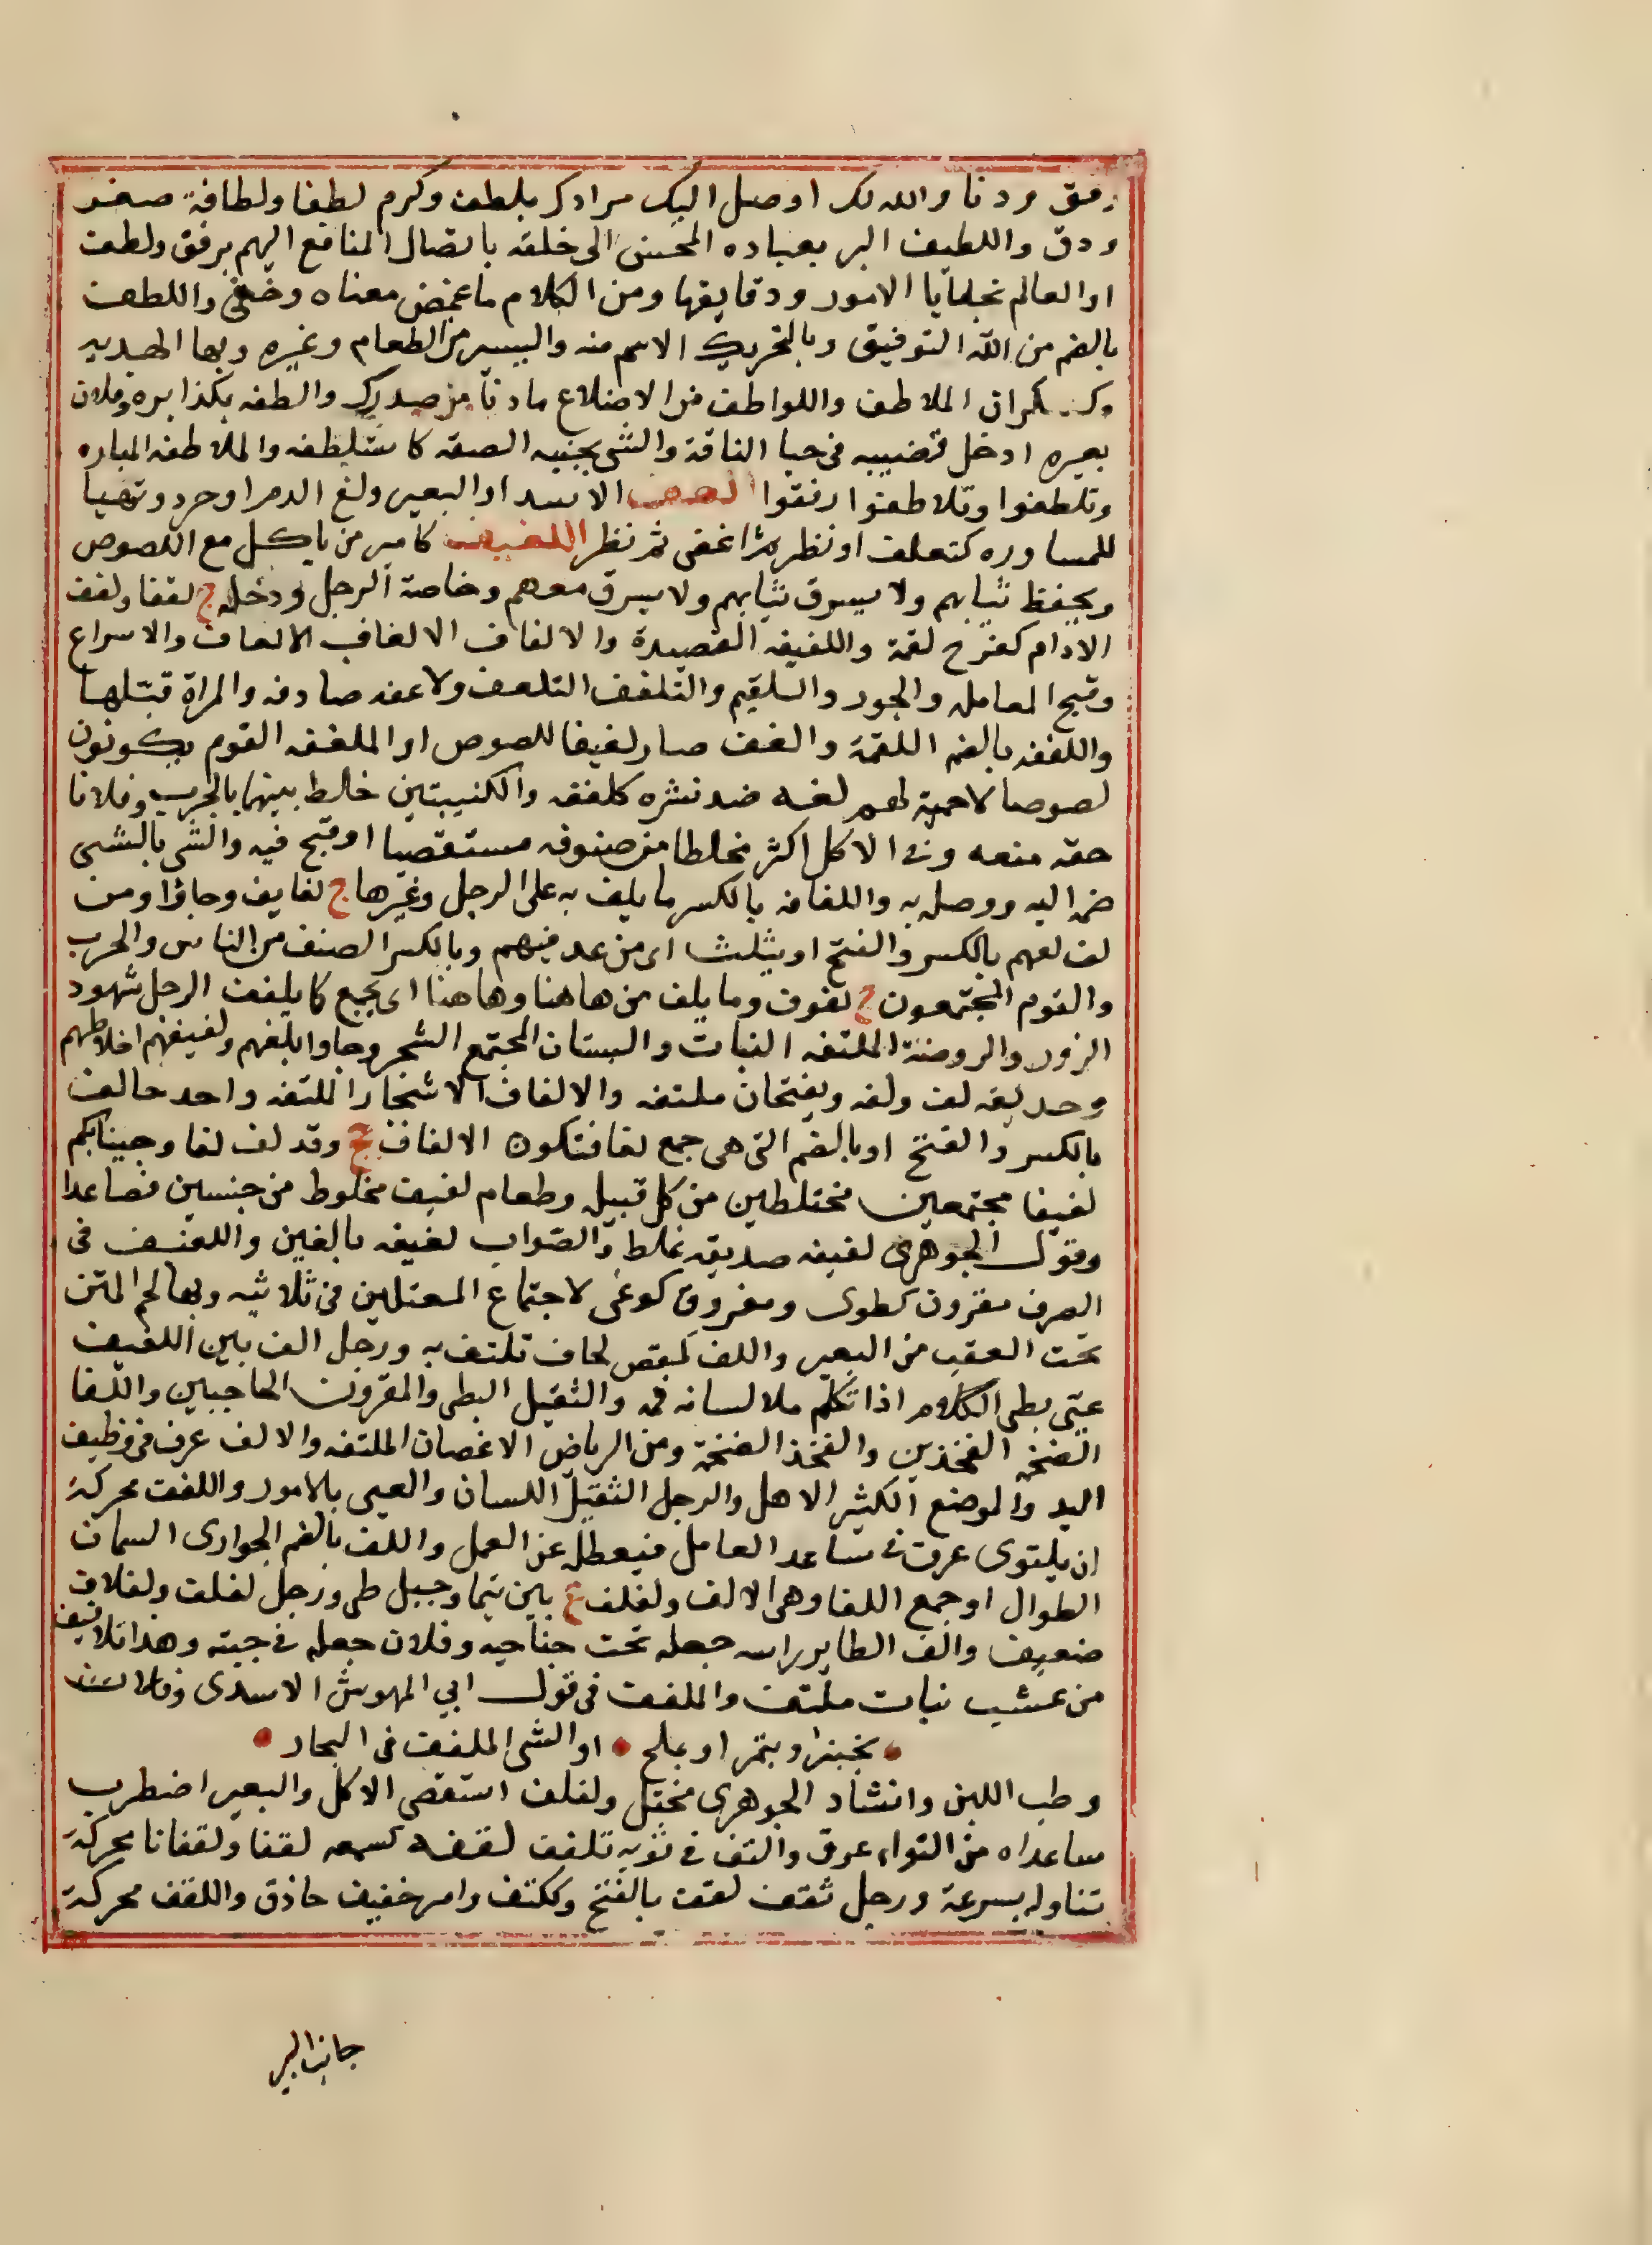 رفق ودنا والله لك اوصل اليك مرادك بلطف وكرم لطفا ولطافة صغر
ودق واللطيف البر بعباده المحسن الى خلقه بايصال المنافع اليهم برفق ولطف
او العالم بخفايا الامور ودقايقها ومن الكلام ما غمض معناه وخفى واللطف
بالضم من الله التوفيق وبالتحريك الاسم منه واليسير من الطعام وغيره وبها الهديه
وكسكران الملاطف واللواطف من الاضلاع ما دنا من صدرك والطفه بكذا بره وفلان
بعيره ادخل قضيبه فى حيا الناقة والشى بجنبه الصقه كاستلطفه والملاطفه المباره
وتلطفوا وتلاطفوا رفقوا الاسد او البعير ولغ الدم او حرد وتهيا
للمساوره كتلعف او نظر ثم اغضى ثم نظر اللغيف كامير من ياكل مع اللصوص
ويحفظ ثيابهم ولا يسرق ثيابهم ولا يسرق معهم وخاصة الرجل ودخله ج لغفا ولغف
الادام كفرح لقمة واللغيفه العصيدة والالغاف الالغاف الالعاف والاسراع
وقبح المعامله والجور والتلقيم والتلغف التلعف ولاغفه صادفه والمراة قبلها
واللغفه بالضم اللقمة والغف صار لغيفا للصوص او الملغفه القوم يكونون
لصوصا لا حمية لهم لفه ضد نشره كلففه والكتيبتين خلط بينهما بالحرب وفلانا
حقه منعه وفى الاكل اكثر مخلطا من صنوفه مستقصيا او قبح فيه والشى بالشى
ضمه اليه ووصله به واللفافه بالكسر ما يلف به على الرجل وغيرها ج لفايف وجاؤا ومن
لف لفهم بالكسر والفتح او يثلث اى من عد فيهم وبالكسر الصنف من الناس والحرب
والقوم المجتمعون ج لفوف وما يلف من هاهنا وهاهنا اى يجمع كما يلفف الرجل شهود
الزور والروضة الملتفه النبات والبستان المجتمع الشجر وجاوا بلفهم ولفيفهم اخلاطهم
وحديقه لف ولفه ويفتحان ملتفه والالفاف الاشجار الملتفه واحدها لف
بالكسر والفتح او بالضم التى هى جمع لفا فتكون الالفاف جج وقد لف لفا وجينا بكم
لفيفا مجتمعين مختلطين من كل قبيله وطعام لفيف مخلوط من جنسين فصاعدا
وقول الجوهرى لفيفه صديقه غلط والصواب لغيفه بالغين واللفيف فى
الصرف مقرون كطوى ومفروق كوعى لاجتماع المعتلين فى ثلاثيه وبها لحم المتن
تحت العقب من البعير واللف كمقص لحاف تلتف به ورجل الف بين اللفيف
عيى بطى الكلام اذا تكلم ملا لسانه فمه والثقيل البطى والمقرون الحاجبين واللفا
الضخمه الفخذين والفخذ الضخمة ومن الرياض الاغصان الملتفه والالف عرق فى وظيف
اليد والموضع الكثير الاهل والرجل الثقيل اللسان والعيى بالامور واللفف محركة
ان يلتوى عرق فى ساعد العامل فيعطله عن العمل واللف بالضم الجوارى السمان
الطوال او جمع اللفا وهى الالف ولفلف ع بين تيما وجبل طى ورجل لفلف ولفلاف
ضعيف والف الطاير راسه جعله تحت جناحيه وفلان جعله فى جبته وهنا تلافيف
من عشب نبات ملتف والملفف فى قول ابي المهوش الاسدى
بخبز او بتمر او بلح • او الشى الملفف فى البجاد
وطب اللبن وانشاد الجوهرى مختل ولفلف استقصى الاكل والبعير اضطرب
ساعداه من التواء عرق والتف فى ثوبه تلفف لقفه كسمعه لقفا ولقفانا محركة
تناوله بسرعة ورجل ثقف لقف بالفتح وككتف وامير خفيف حاذق واللقف محركة
جانب البير